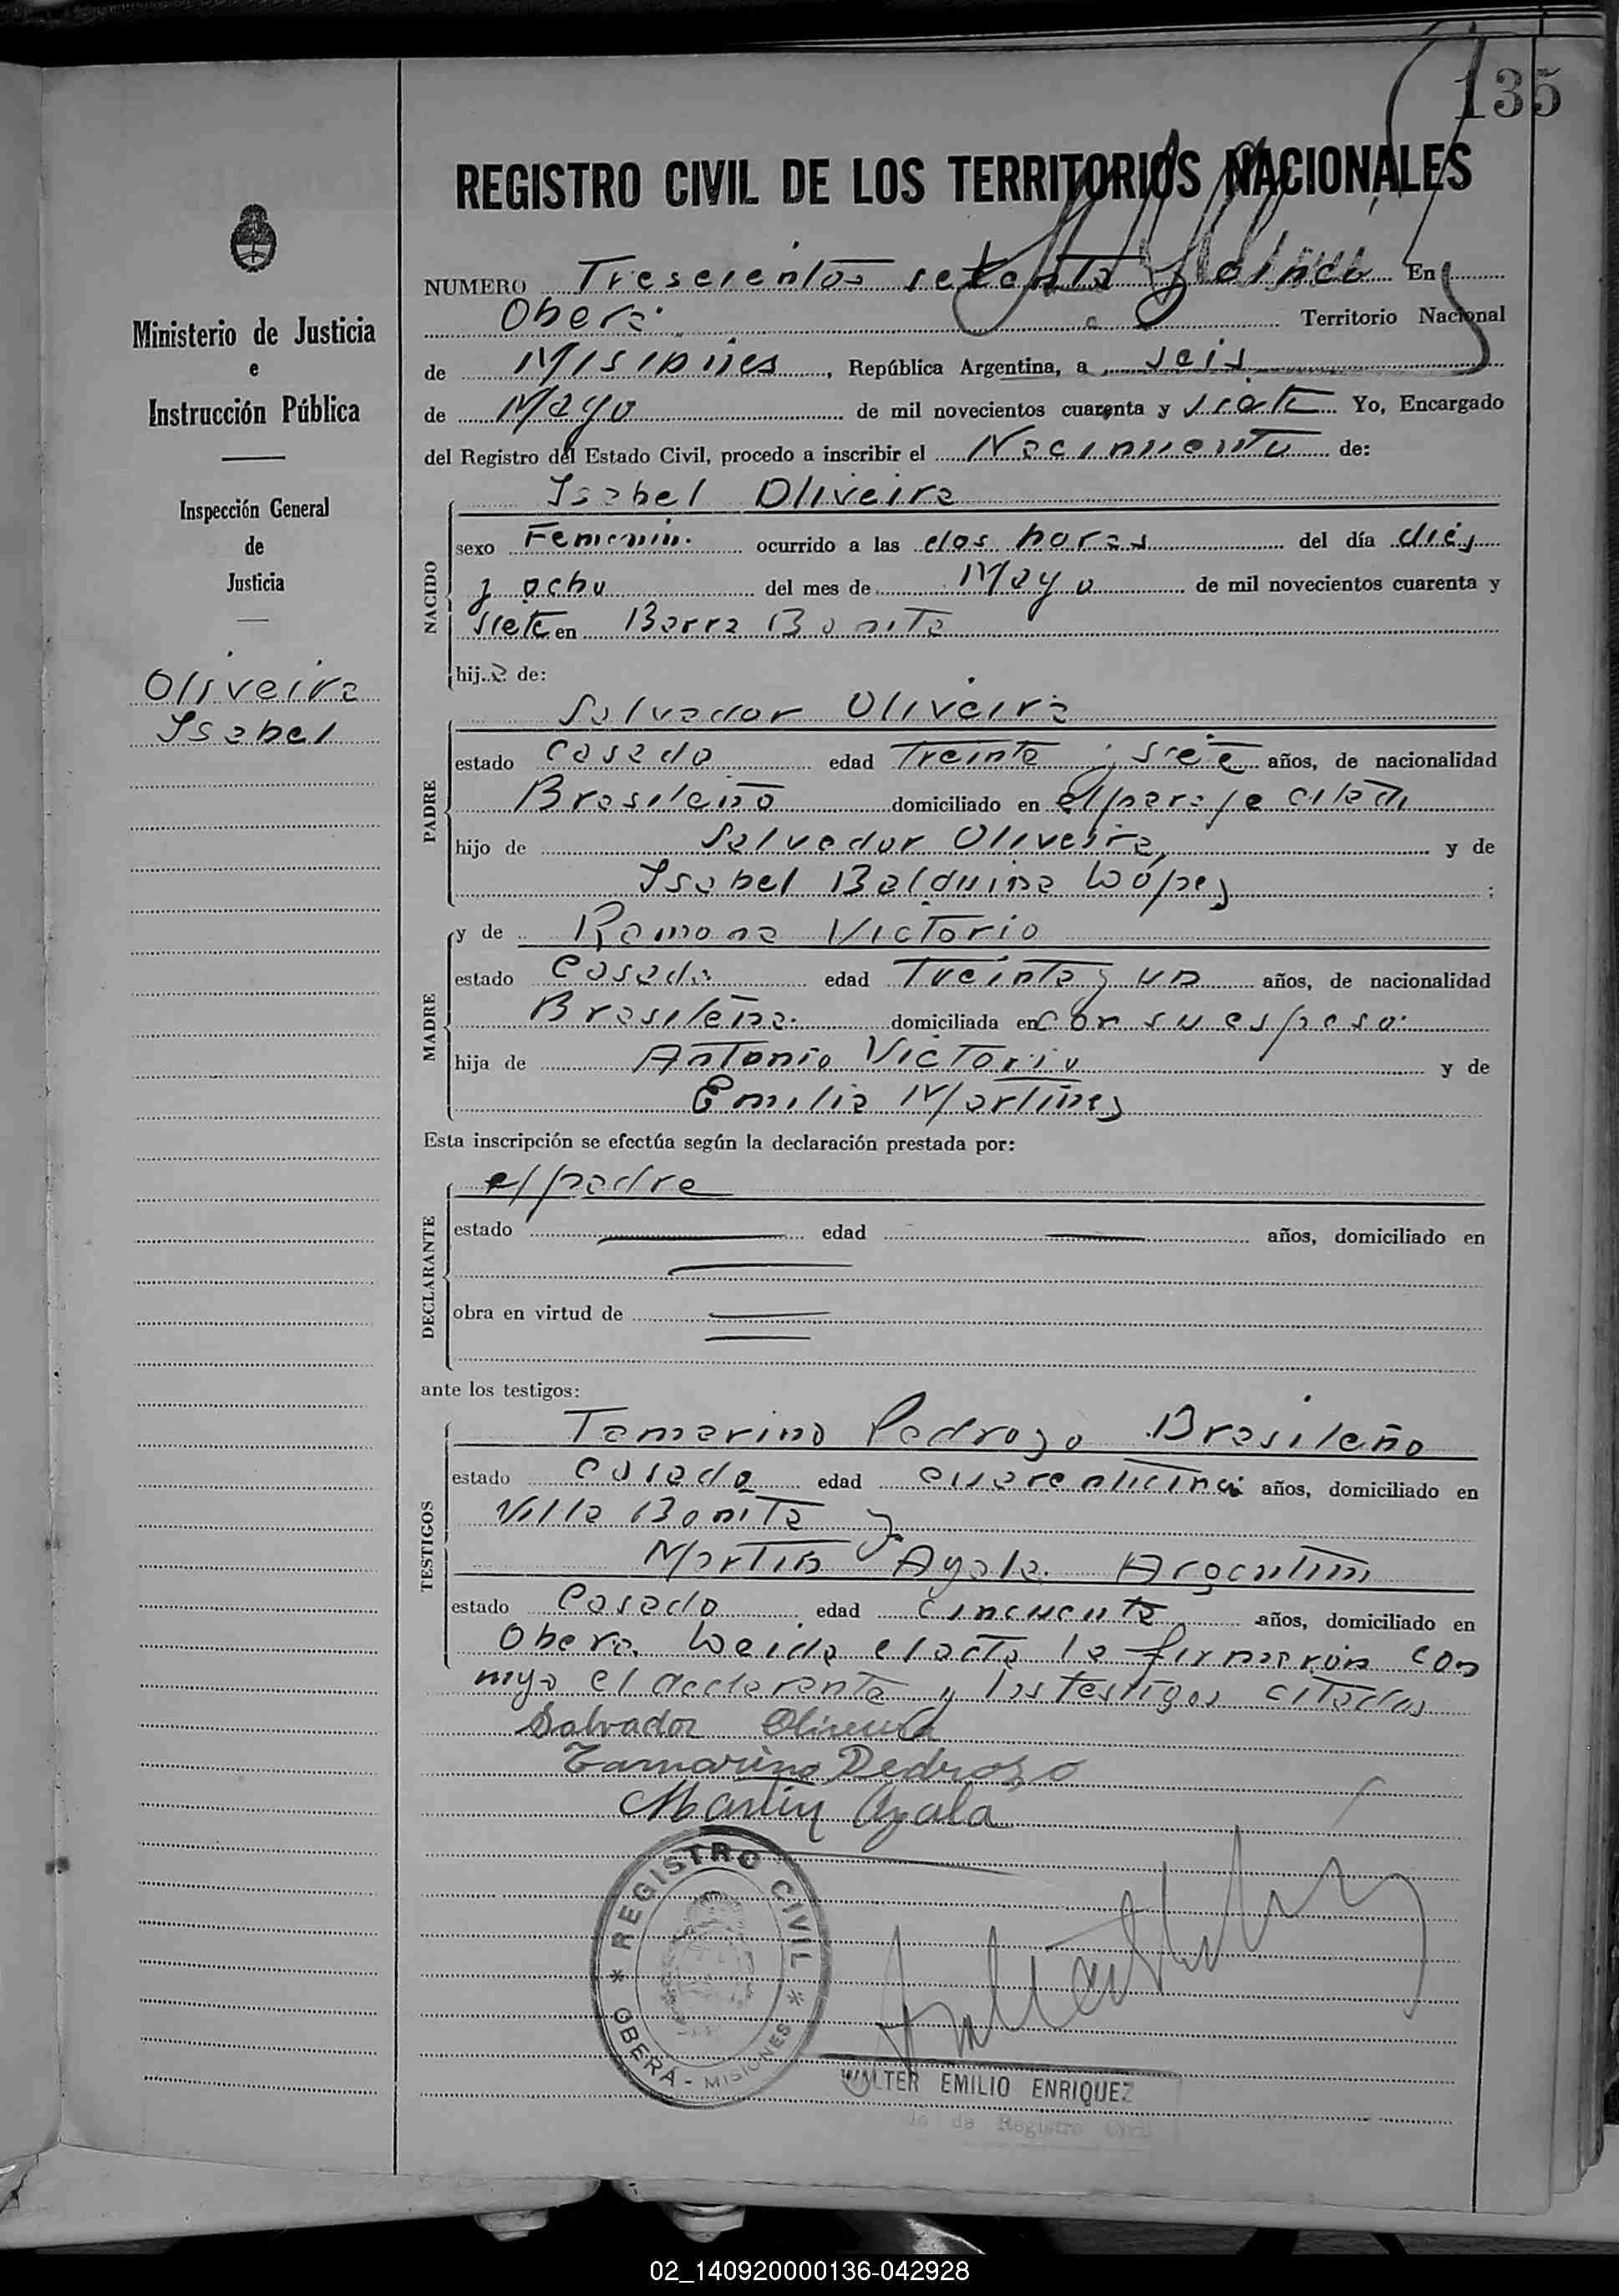 135
REGISTRO CIVIL DE LOS TERRITORIOS NACIONALES
NUMERO Trescientos setenta y cinco En
Oberá Territorio Nacional
de Misiones, República Argentina, a seis
de Mayo de mil novecientos cuarenta y siete Yo, Encargado
del Registro del Estado Civil, procedo a inscribir el Nacimiento de:
Ministerio de Justicia
e
Instrucción Pública
Inspección General
de
Justicia
Oliveira
Isabel
NACIDO
Isabel Oliveira
sexo Femenino ocurrido a las dos horas del día dies
y ocho del mes de Mayo de mil novecientos cuarenta y
siete en Barra Bonita
hija de:
PADRE
Salvador Oliveira
estado Casado edad Treinta y siete años, de nacionalidad
Brasileño domiciliado en el paraje citado
hijo de Salvador Oliveira, y de
Isabel Balduina López ;
MADRE
y de Ramona Victorio
estado Casada edad Treinta y un años, de nacionalidad
Brasileña domiciliada en con su esposo
hija de Antonio Victorio y de
Emilia Martines
Esta inscripción se efectúa según la declaración prestada por:
DECLARANTE
el padre
estado edad años, domiciliado en
obra en virtud de
ante los testigos:
TESTIGOS
Tamarino Pedrozo Brasileño
estado Casado edad cuarenticinco años, domiciliado en
Villa Bonita y
Martin Ayala Argentino
estado Casado edad cincuenta años, domiciliado en
Obera. Leida el acta la firmaron con
migo el declarante y los testigos citados
Salvador Oliveira
Tamarino Pedrozo
Martin Ayala
REGISTRO CIVIL
OBERÁ - MISIONES
WALTER EMILIO ENRIQUEZ
de Registro Civil
02_140920000136-042928